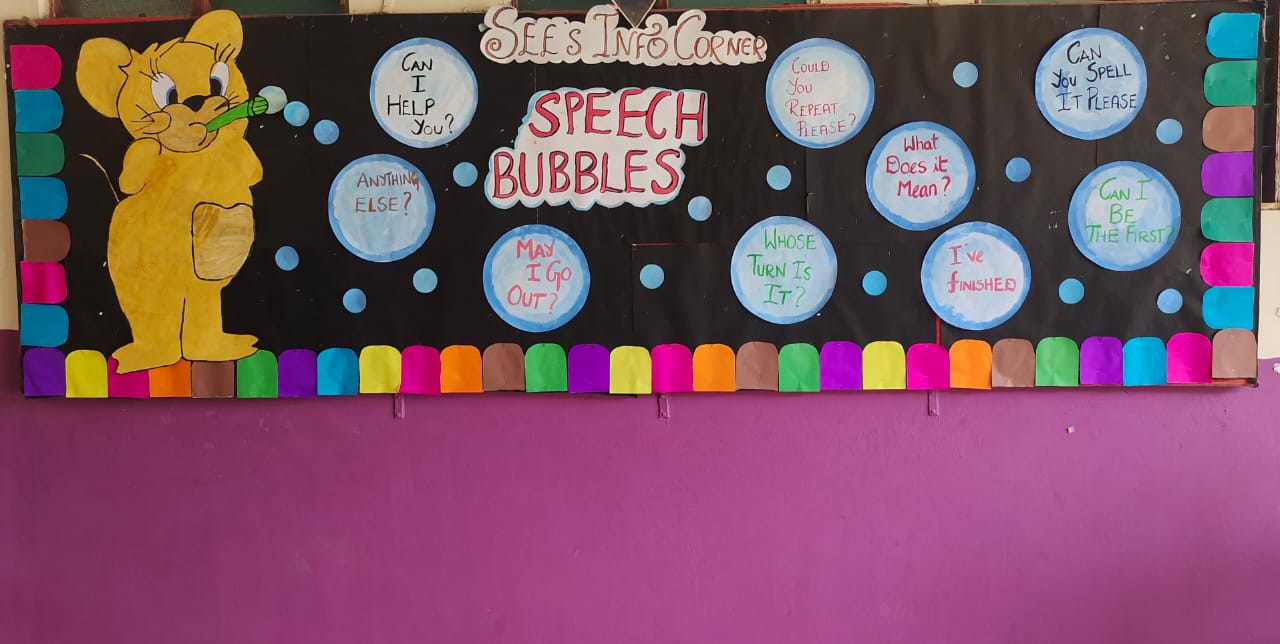 SEE'S INFO CORNER
SPEECH
BUBBLES
CAN
I
HELP
YOU?
ANYTHING
ELSE?
MAY
I GO
OUT?
COULD
YOU
REPEAT
PLEASE?
WHOSE
TURN IS
IT?
WHAT
DOES it
MEAN?
I've
fINISHED
CAN
YOU SPELL
IT PLEASE
CAN I
BE
THE FIRST?